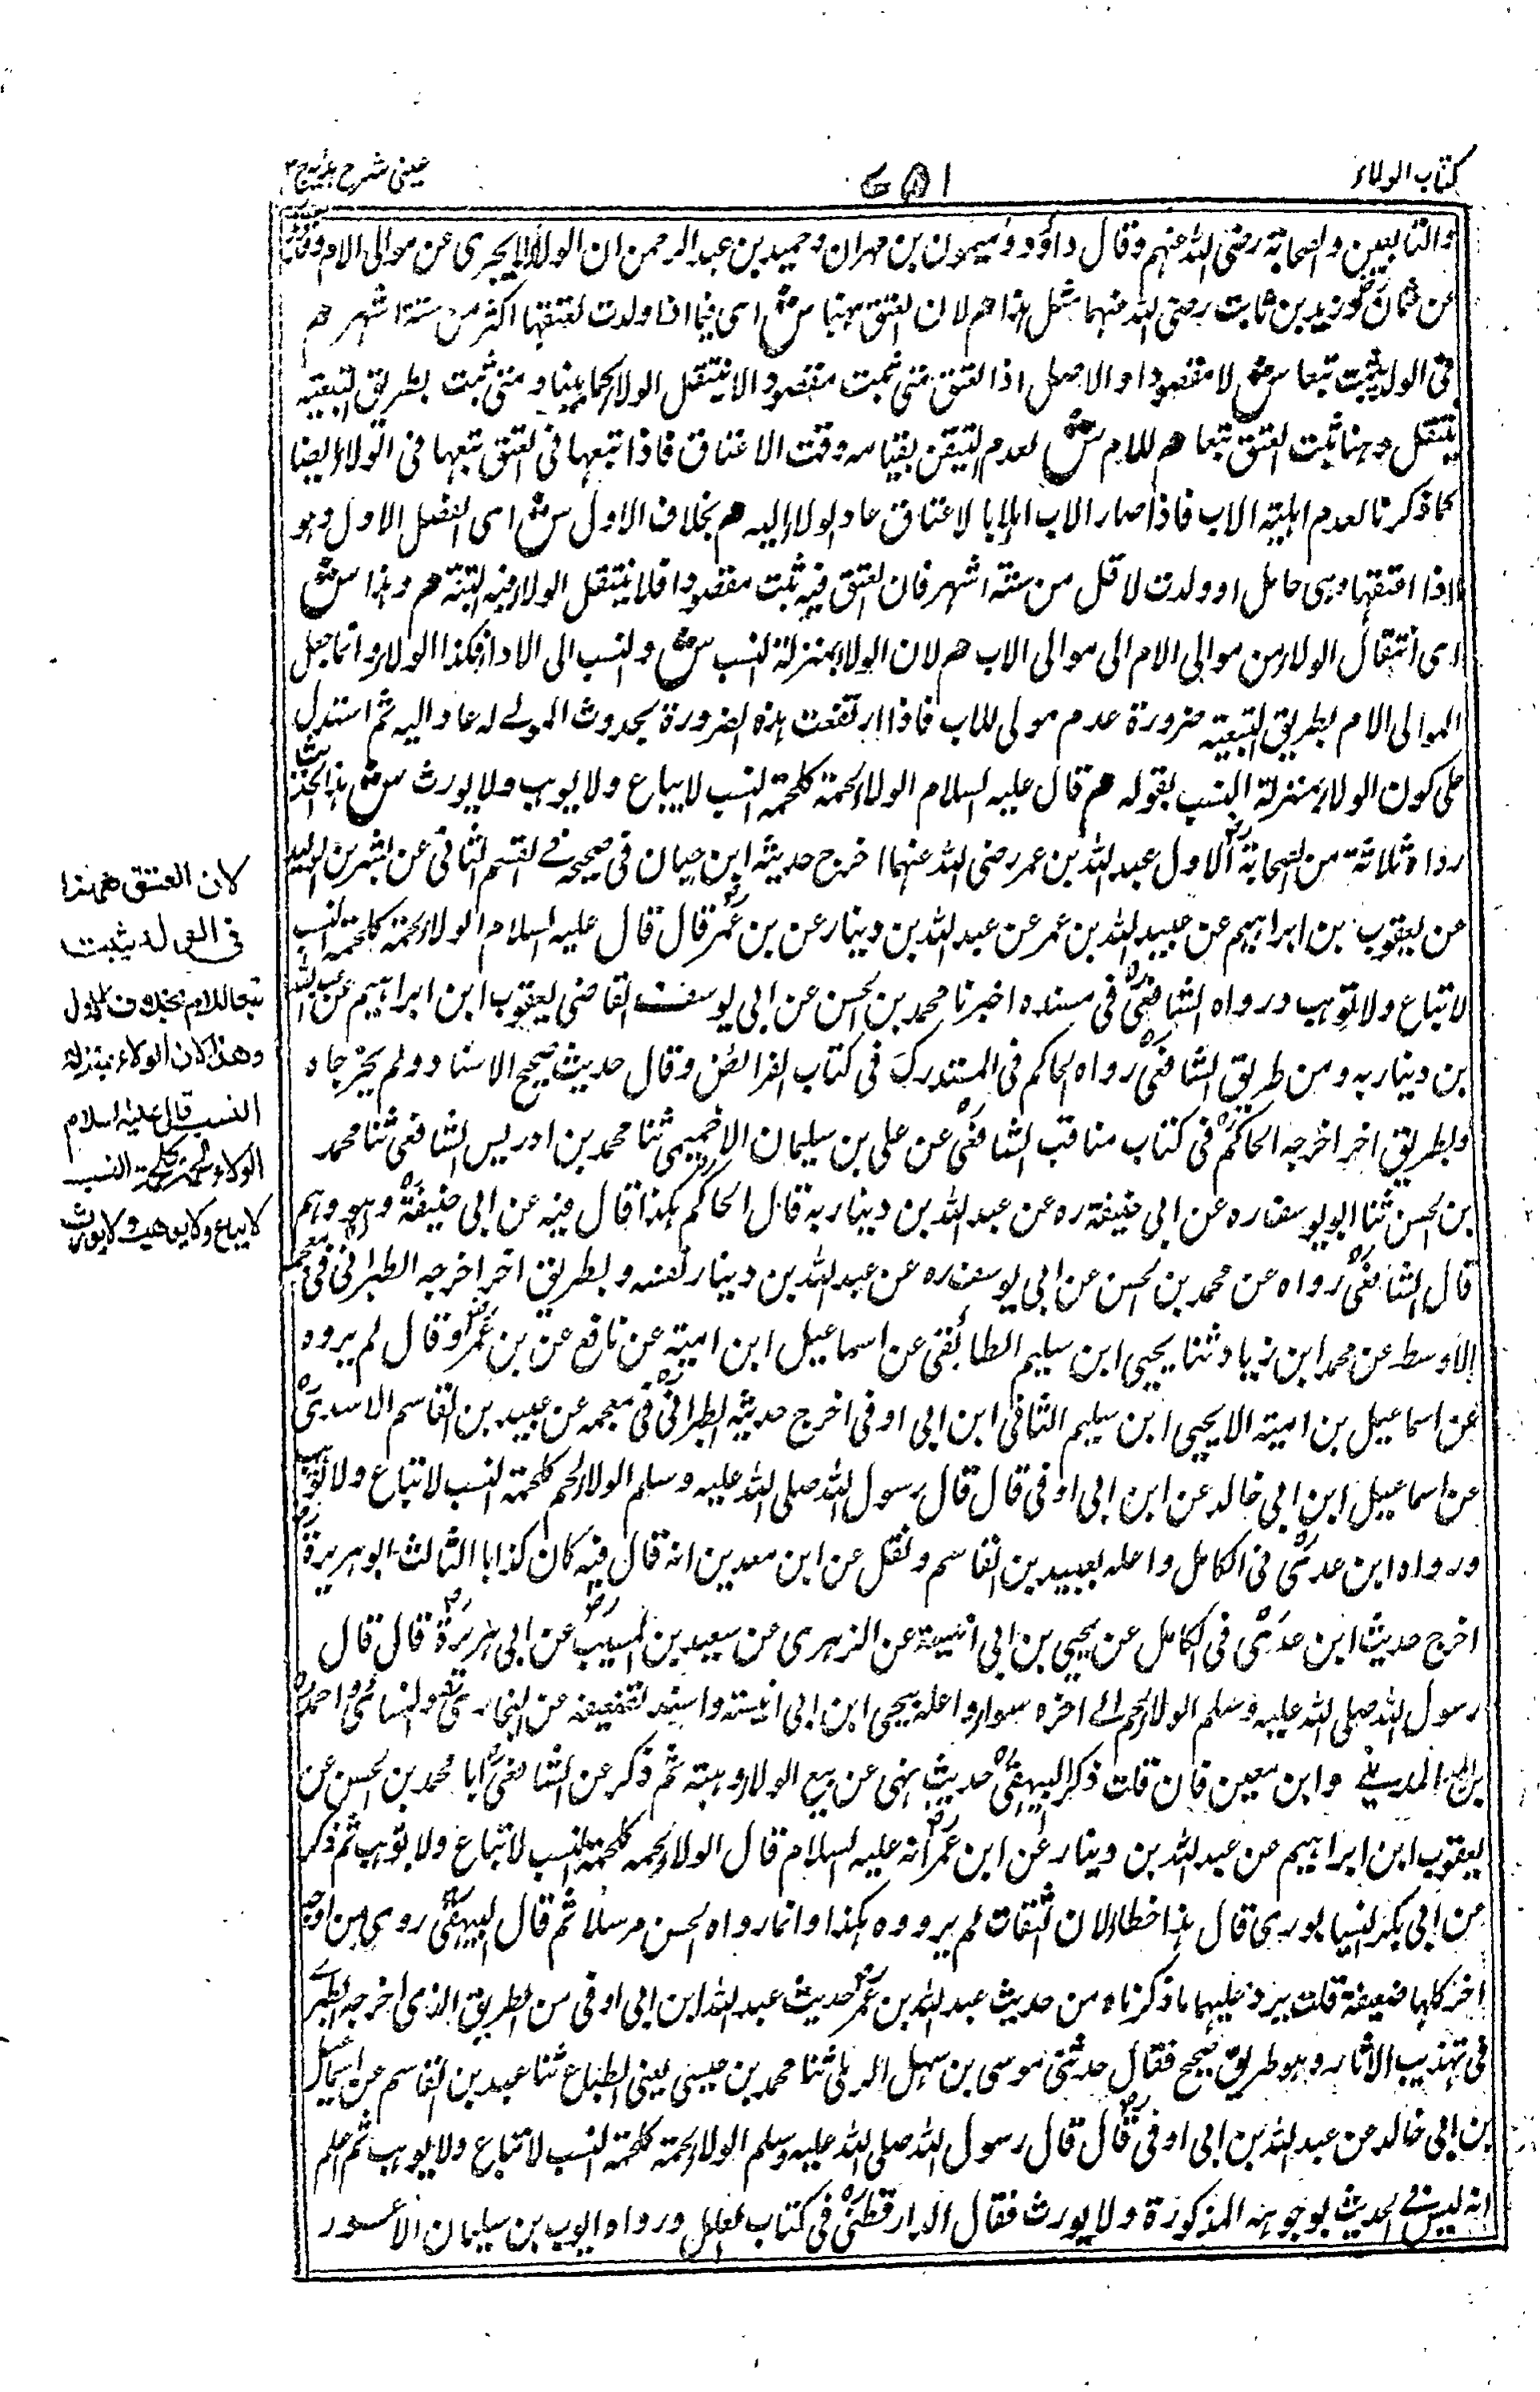 كتاب الولاء
عینی شرح ہدایہ ج ۳
والتابعين والصحابة رضى الله عنهم وقال داؤد وميمون بن مهران وحميد بن عبد الرحمن ان الولاء لا يجرى عن موالى الام
عن عثمان وزيد بن ثابت رضى الله عنهما مثل هذا هم لان العتق ههنا ش اى فيما اذا ولدت لعتقها اكثر من ستة اشهر هم
فى الولد يثبت تبعا ش لا مقصودا والاصل اذا العتق متى ثبت مقصودا لا ينتقل الولاء كما بينا ومتى ثبت بطريق التبعية
ينتقل وهنا ثبت العتق تبعا هم للام ش لعدم التيقن بقيامه وقت الاعتاق فاذا تبعها فى العتق تبعها فى الولاء ايضا
كما ذكرنا لعدم اهلية الاب فاذا صار الاب اهلا بالاعتاق عاد الولاء اليه هم بخلاف الاول ش اى الفصل الاول وهو
اذا اعتقها وهى حامل او ولدت لاقل من ستة اشهر فان العتق فيه ثبت مقصودا فلا ينتقل الولاء فيه البتة هم وهذا ش
اى انتقال الولاء من موالى الام الى موالى الاب هم لان الولاء بمنزلة النسب ش والنسب الى الاداء فكذا الولاء وانما جعل
الموالى الام بطريق التبعية ضرورة عدم مولى للاب فاذا ارتفعت هذه الضرورة بحدوث المولے له عاد اليه ثم استدل
على كون الولاء بمنزلة النسب بقوله هم قال عليه السلام الولاء لحمة كلحمة النسب لا يباع ولا يوهب ولا يورث ش هذا الحديث
رواه ثلاثة من الصحابة الاول عبد الله بن عمر رضى الله عنهما اخرج حديثه ابن حبان فى صحيحه فے القسم الثانى عن بشر بن الوليد
عن يعقوب بن ابراهيم عن عبيد الله بن عمر عن عبد الله بن دينار عن بن عمر قال قال عليه السلام الولاء لحمة كلحمة النسب
لا تباع ولا توهب ورواه الشافعى فى مسنده اخبرنا محمد بن الحسن عن ابى يوسف القاضى يعقوب ابن ابراهيم عن عبد الله
بن دينار به ومن طريق الشافعى رواه الحاكم فى المستدرك فى كتاب الفرائض وقال حديث صحيح الاسناد ولم يخرجاه
وبطريق اخر اخرجه الحاكم فى كتاب مناقب الشافعى عن على بن سليمان الاخميمى ثنا محمد بن ادريس الشافعى ثنا محمد
بن الحسن ثنا ابو يوسف ره عن ابى حنيفة ره عن عبد الله بن دينار به قال الحاكم هكذا قال فيه عن ابى حنيفة وهو وهم
قال الشافعى رواه عن محمد بن الحسن عن ابى يوسف ره عن عبد الله بن دينار نفسه وبطريق اخر اخرجه الطبرانى فى معجمه
الاوسط عن محمد ابن زياد ثنا يحيى ابن سليم الطائفى عن اسماعيل ابن امية عن نافع عن بن عمر وقال لم يروه
عن اسماعيل بن امية الا يحيى ابن سليم الثانى ابن ابى اوفى اخرج حديثه الطبرانى فى معجمه عن عبيد بن القاسم الاسدى
عن اسماعيل ابن ابى خالد عن ابن ابى اوفى قال قال رسول الله صلى الله عليه وسلم الولاء لحم كلحمة النسب لا تباع ولا توهب
ورواه ابن عدى فى الكامل واعله بعبيد بن القاسم ونقل عن ابن معين انه قال فيه كان كذابا الثالث ابو هريرة
اخرج حديث ابن عدى فى الكامل عن يحيى بن ابى انيسة عن الزهرى عن سعيد بن المسيب عن ابى هريرة قال قال
رسول الله صلى الله عليه وسلم الولاء لحم الے اخره سواء واعله بيحيى ابن ابى انيسة واسند تضعيفه عن البخارى والنسائى واحمد
بن المدينے وابن معين فان قلت ذكر البيهقى حديث نهى عن بيع الولاء وهبته ثم ذكر عن الشافعى انا محمد بن الحسن عن
يعقوب ابن ابراهيم عن عبد الله بن دينار عن ابن عمر انه عليه السلام قال الولاء لحمه كلحمة النسب لا تباع ولا توهب ثم ذكر
عن ابى بكر النيسابورى قال هذا خطاء لان الثقات لم يرووه هكذا وانما رواه الحسن مرسلا ثم قال البيهقى روى من اوجه
اخر كلها ضعيفة قلت يرد عليهما ما ذكرناه من حديث عبد الله بن عمر حديث عبد الله ابن ابى اوفى من الطريق الذى اخرجه الطبرے
فى تهذيب الاثار وهو طريق صحيح فقال حدثنى موسى بن سهل الرملى ثنا محمد بن عيسى يعنى الطباع ثنا عبيد بن القاسم عن اسماعيل
بن ابى خالد عن عبد الله بن ابى اوفى قال قال رسول الله صلى الله عليه وسلم الولاء لحمة كلحمة النسب لا تباع ولا يوهب ثم اعلم
انه ليس فے الحديث بوجوهه المذكورة ولا يورث فقال الدارقطنى فى كتاب العلل ورواه ايوب بن سليمان الاعور
لان العتق ههنا
فى الولد يثبت
تبعا للام بخلاف الاول
وهذا لان الولاء بمنزلة
النسب قال عليه السلام
الولاء لحمة كلحمة النسب
لا يباع ولا يوهب ولا يورث